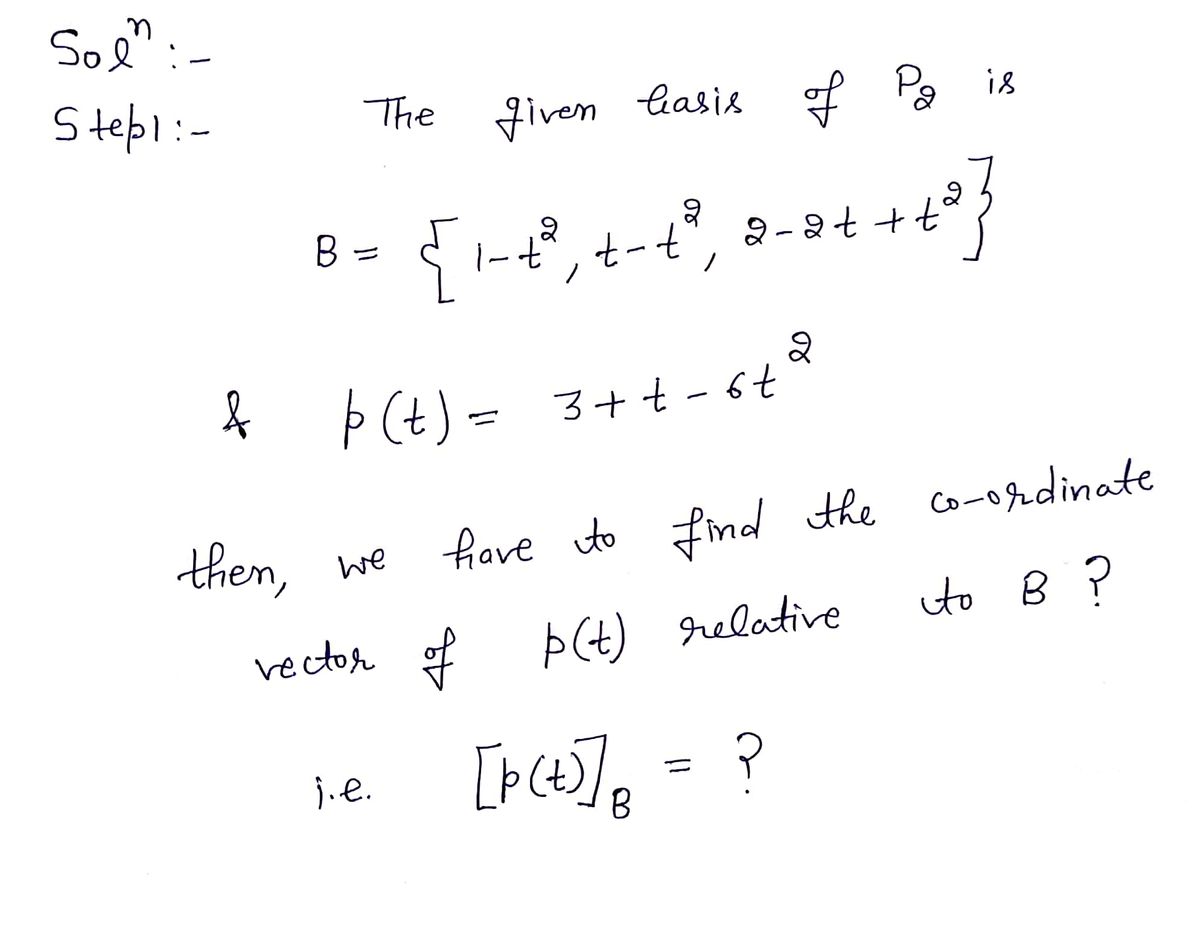 Solⁿ :-
Step1 :- The given basis of P₂ is
B = { 1-t², t-t², 2-2t+t² }
& p(t) = 3+t-6t²
then, we have to find the co-ordinate
vector of p(t) relative to B ?
i.e. [p(t)]_B = ?